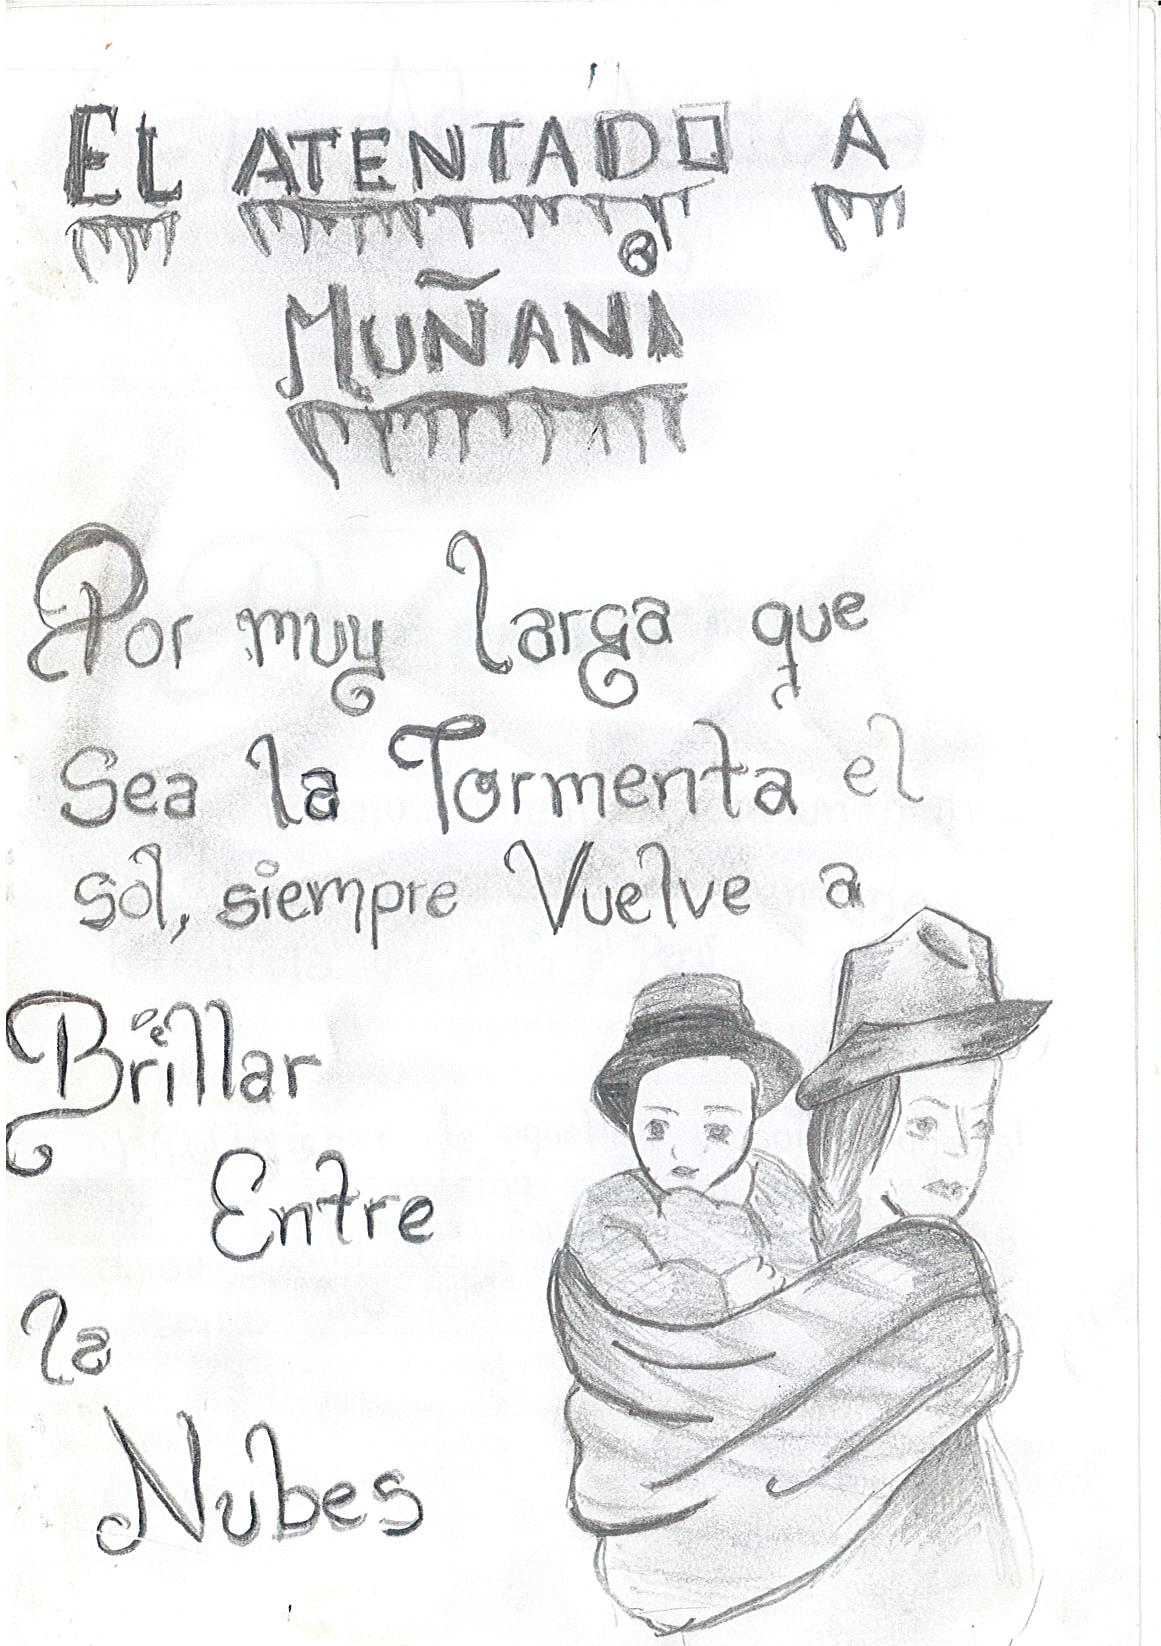 EL ATENTADO A
MUÑANI
Por muy larga que
Sea la Tormenta el
sol, siempre Vuelve a
Brillar
Entre
la
Nubes